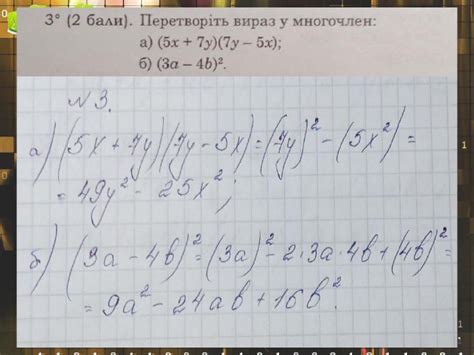 3° (2 бали). Перетворіть вираз у многочлен:
а) (5x + 7y)(7y – 5x);
б) (3a – 4b)².
№3.
а) (5x+7y)(7y-5x)=(7y)²-(5x²)=
=49y²-25x²;
б) (3a-4b)²=(3a)²-2·3a·4b+(4b)²=
=9a²-24ab+16b².